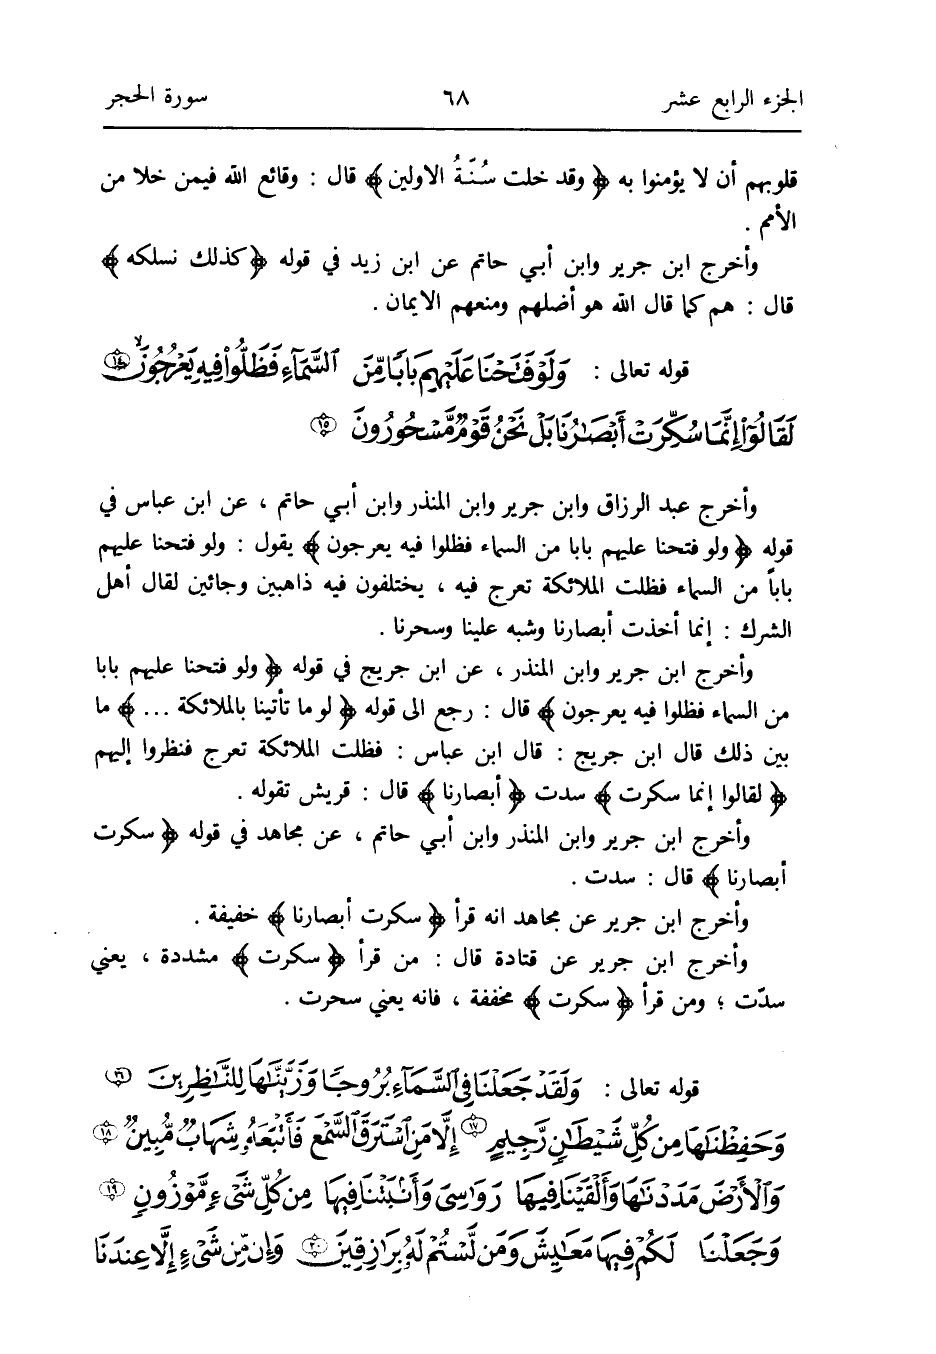 الجزء الرابع عشر ٦٨ سورة الحجر
قلوبهم أن لا يؤمنوا به ﴿ وقد خلت سُنّةُ الاولين ﴾ قال : وقائع الله فيمن خلا من
الأمم .
وأخرج ابن جرير وابن أبي حاتم عن ابن زيد في قوله ﴿ كذلك نسلكه ﴾
قال : هم كما قال الله هو أضلهم ومنعهم الايمان .
قوله تعالى : وَلَوْ فَتَحْنَا عَلَيْهِم بَابًا مِّنَ السَّمَآءِ فَظَلُّوا۟ فِيهِ يَعْرُجُونَ ۙ ١٤
لَقَالُوٓا۟ إِنَّمَا سُكِّرَتْ أَبْصَـٰرُنَا بَلْ نَحْنُ قَوْمٌ مَّسْحُورُونَ ١٥
وأخرج عبد الرزاق وابن جرير وابن المنذر وابن أبي حاتم ، عن ابن عباس في
قوله ﴿ ولو فتحنا عليهم بابا من السماء فظلوا فيه يعرجون ﴾ يقول : ولو فتحنا عليهم
باباً من السماء فظلت الملائكة تعرج فيه ، يختلفون فيه ذاهبين وجائين لقال أهل
الشرك : إنما أخذت أبصارنا وشبه علينا وسحرنا .
وأخرج ابن جرير وابن المنذر ، عن ابن جريج في قوله ﴿ ولو فتحنا عليهم بابا
من السماء فظلوا فيه يعرجون ﴾ قال : رجع الى قوله ﴿ لو ما تأتينا بالملائكة ... ﴾ ما
بين ذلك قال ابن جريج : قال ابن عباس : فظلت الملائكة تعرج فنظروا إليهم
﴿ لقالوا إنما سكرت ﴾ سدت ﴿ أبصارنا ﴾ قال : قريش تقوله .
وأخرج ابن جرير وابن المنذر وابن أبي حاتم ، عن مجاهد في قوله ﴿ سكرت
أبصارنا ﴾ قال : سدت .
وأخرج ابن جرير عن مجاهد انه قرأ ﴿ سكرت أبصارنا ﴾ خفيفة .
وأخرج ابن جرير عن قتادة قال : من قرأ ﴿ سكرت ﴾ مشددة ، يعني
سدّت ؛ ومن قرأ ﴿ سكرت ﴾ مخففة ، فانه يعني سحرت .
قوله تعالى : وَلَقَدْ جَعَلْنَا فِي السَّمَآءِ بُرُوجًا وَزَيَّنَّـٰهَا لِلنَّـٰظِرِينَ ١٦
وَحَفِظْنَـٰهَا مِن كُلِّ شَيْطَـٰنٍ رَّجِيمٍ ١٧ إِلَّا مَنِ اسْتَرَقَ السَّمْعَ فَأَتْبَعَهُۥ شِهَابٌ مُّبِينٌ ١٨
وَالْأَرْضَ مَدَدْنَـٰهَا وَأَلْقَيْنَا فِيهَا رَوَٰسِيَ وَأَنۢبَتْنَا فِيهَا مِن كُلِّ شَىْءٍ مَّوْزُونٍ ١٩
وَجَعَلْنَا لَكُمْ فِيهَا مَعَـٰيِشَ وَمَن لَّسْتُمْ لَهُۥ بِرَٰزِقِينَ ٢٠ وَإِن مِّن شَىْءٍ إِلَّا عِندَنَا